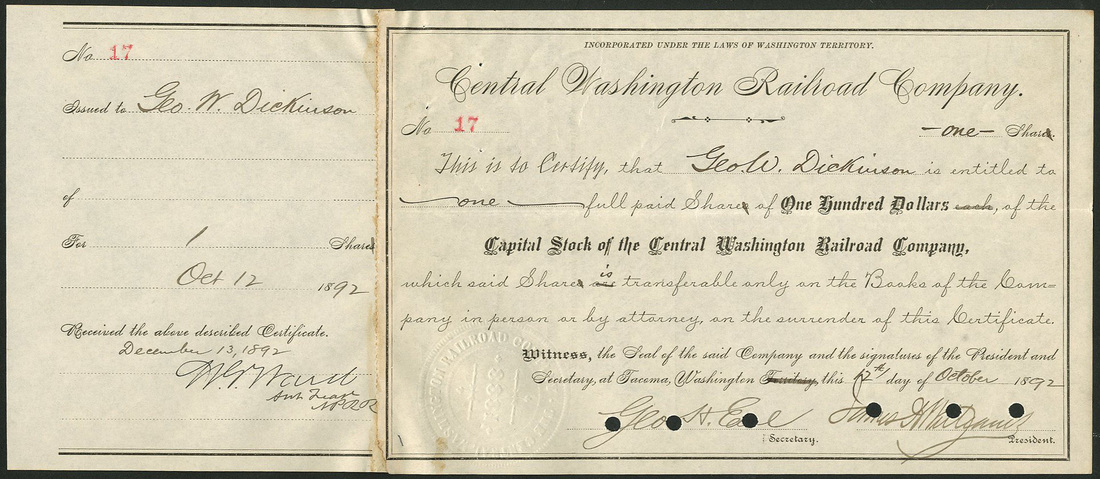 No 17
Issued to Geo. W. Dickinson
of
For 1 Shares
Oct 12 1892
Received the above described Certificate.
December 13, 1892
INCORPORATED UNDER THE LAWS OF WASHINGTON TERRITORY.
Central Washington Railroad Company.
No 17 -one- Shares.
This is to Certify, that Geo. W. Dickinson is entitled to
one full paid Shares of One Hundred Dollars each, of the
Capital Stock of the Central Washington Railroad Company,
is
which said Shares are transferable only on the Books of the Com=
pany in person or by attorney, on the surrender of this Certificate.
Witness, the Seal of the said Company and the signatures of the President and
Secretary, at Tacoma, Washington Territory, this 12th day of October 1892
Geo. H. Earl
Secretary. President.